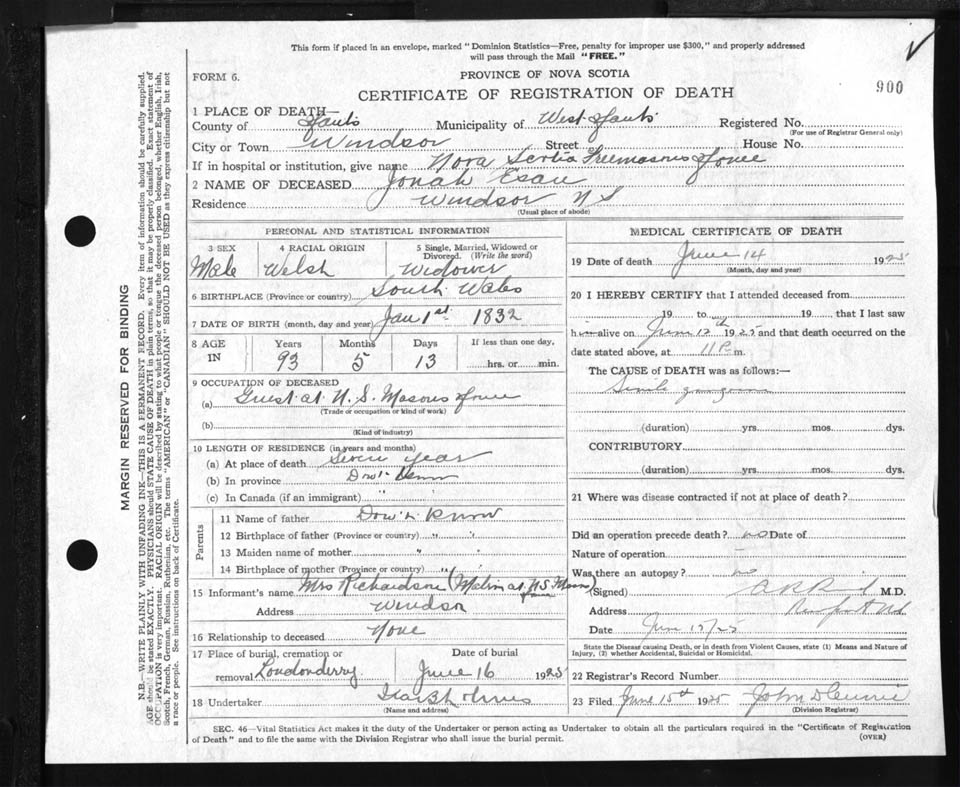 This form if placed in an envelope, marked "Dominion Statistics—Free, penalty for improper use $300," and properly addressed
will pass through the Mail "FREE."
FORM 6.
PROVINCE OF NOVA SCOTIA
900
CERTIFICATE OF REGISTRATION OF DEATH
1 PLACE OF DEATH—
County of Hants Municipality of West Hants Registered No.
(For use of Registrar General only)
City or Town Windsor Street House No.
If in hospital or institution, give name Nova Scotia Freemasons Home
2 NAME OF DECEASED Jonah Esau
Residence Windsor N S
(Usual place of abode)
PERSONAL AND STATISTICAL INFORMATION
3 SEX 4 RACIAL ORIGIN 5 Single, Married, Widowed or
Divorced. (Write the word)
Male Welsh Widower
6 BIRTHPLACE (Province or country) South Wales
7 DATE OF BIRTH (month, day and year) Jan 1st 1832
8 AGE Years Months Days If less than one day,
IN 93 5 13 hrs. or min.
9 OCCUPATION OF DECEASED
(a) Guest at N. S. Masons Home
(Trade or occupation or kind of work)
(b)
(Kind of industry)
10 LENGTH OF RESIDENCE (in years and months)
(a) At place of death Seven year
(b) In province Don't Know
(c) In Canada (if an immigrant) " "
Parents
11 Name of father Don't Know
12 Birthplace of father (Province or country) " "
13 Maiden name of mother " "
14 Birthplace of mother (Province or country) " "
15 Informant's name Mrs Richardson (Matron at N.S. Mason Home)
Address Windsor
16 Relationship to deceased None
17 Place of burial, cremation or Date of burial
removal Londonderry June 16 1925
18 Undertaker
(Name and address)
MEDICAL CERTIFICATE OF DEATH
19 Date of death June 14 1925
(Month, day and year)
20 I HEREBY CERTIFY that I attended deceased from
19 to 19 that I last saw
him alive on June 12th 1925 and that death occurred on the
date stated above, at 11 P m.
The CAUSE of DEATH was as follows:—
Senile gangrene
(duration) yrs. mos. dys.
CONTRIBUTORY
(duration) yrs. mos. dys.
21 Where was disease contracted if not at place of death?
Did an operation precede death? no Date of
Nature of operation
Was there an autopsy? no
(Signed) M.D.
Address
Date June 15/25
State the Disease causing Death, or in death from Violent Causes, state (1) Means and Nature of
Injury, (2) whether Accidental, Suicidal or Homicidal.
22 Registrar's Record Number
23 Filed June 15th 1925 John D
(Division Registrar)
SEC. 46—Vital Statistics Act makes it the duty of the Undertaker or person acting as Undertaker to obtain all the particulars required in the "Certificate of Registration
of Death" and to file the same with the Division Registrar who shall issue the burial permit.
(OVER)
MARGIN RESERVED FOR BINDING
N.B.—WRITE PLAINLY WITH UNFADING INK—THIS IS A PERMANENT RECORD. Every item of information should be carefully supplied.
AGE should be stated EXACTLY. PHYSICIANS should STATE CAUSE OF DEATH in plain terms, so that it may be properly classified. Exact statement of
OCCUPATION is very important. RACIAL ORIGIN will be described by stating to what people or tongue the deceased person belonged, whether English, Irish,
Scotch, French, German, Russian, Ruthenian, etc. The terms "AMERICAN" or "CANADIAN" SHOULD NOT BE USED as they express citizenship but not
a race or people. See instructions on back of Certificate.